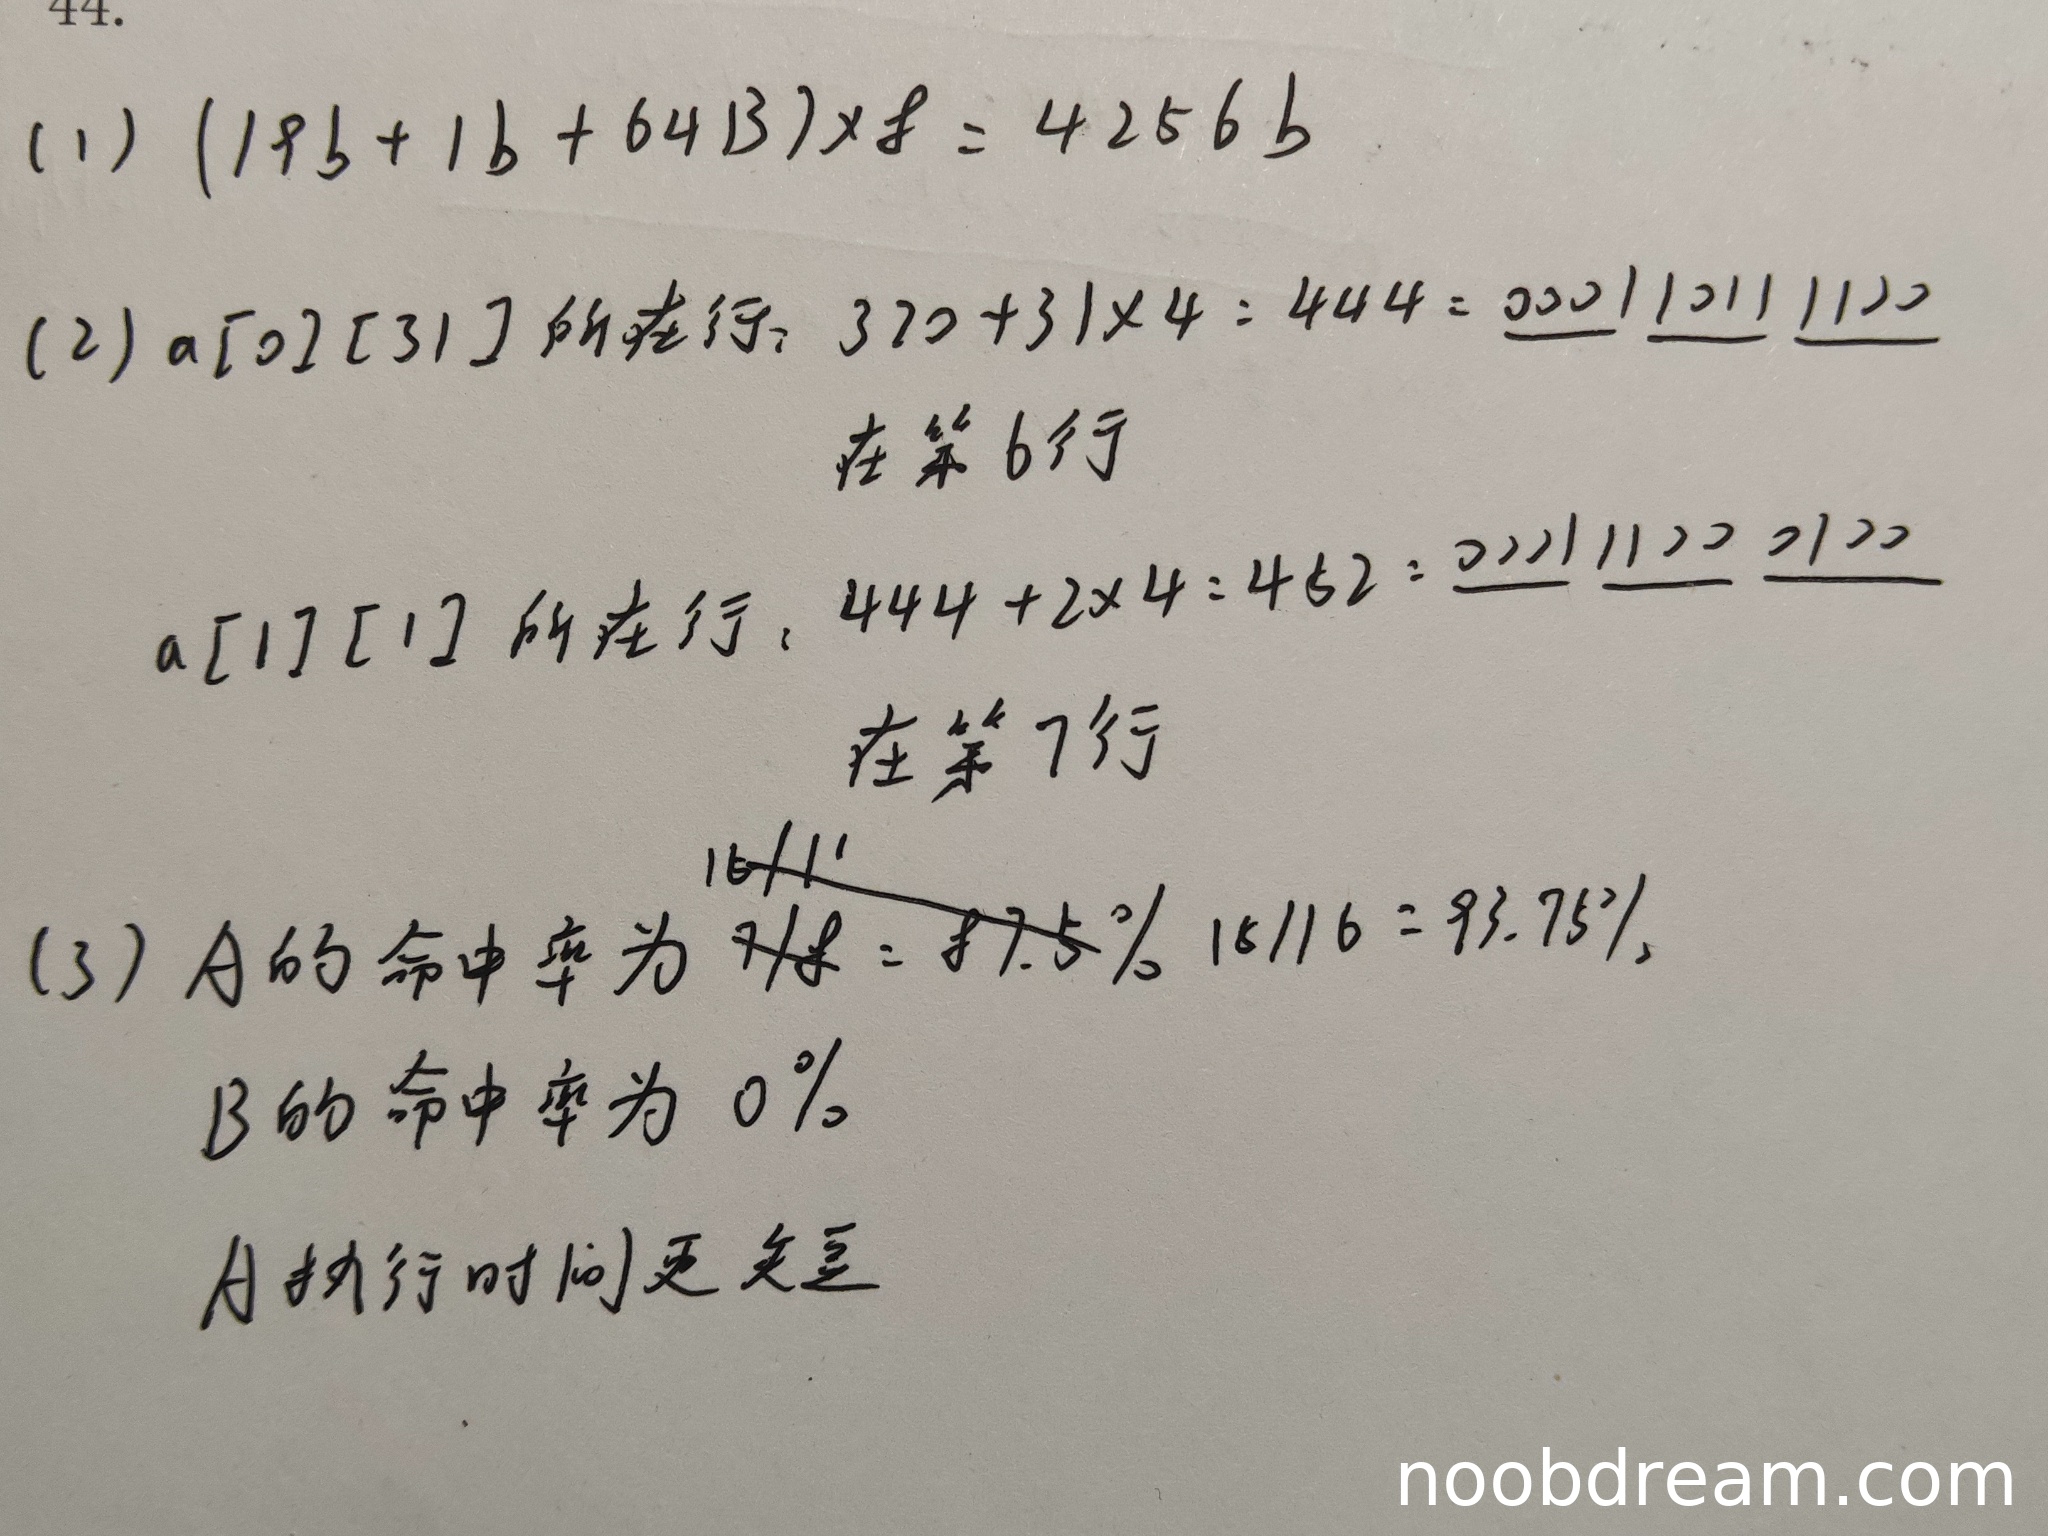 44.
(1) (19b+1b+64B)×8=4256b
(2) a[0][31]所在行: 320+31×4=444=0001 1011 1100
在第6行
a[1][1]所在行: 444+2×4=452=0001 1100 0100
在第7行
15/1
(3) A的命中率为 7/8=87.5% 15/16=93.75%
B的命中率为 0%
A执行时间更短
noobdream.com